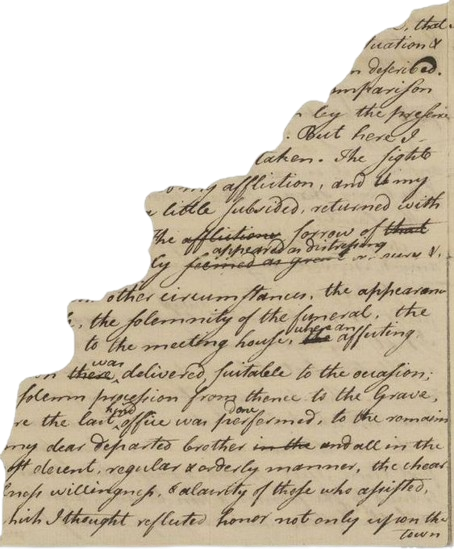 , that
tuation &
n described.
mparison
by the presence
. But here I
taken. The sight
my affliction, and my
little subsided, returned with
the afflictions sorrow of that
appeared as distressing
ly seemed as great or more &.
other circumstances, the appearance
, the solemnity of the funeral, the
to the meeting house, where an
the affecting
was
there delivered suitable to the occasion;
solemn procession from thence to the Grave,
kind done
re the last office was performed, to the remains
my dear departed brother in the and all in the
st decent, regular & orderly manner, the chear
lness willingness, & alacrity of those who assisted,
hich I thought reflected honor not only upon the
town